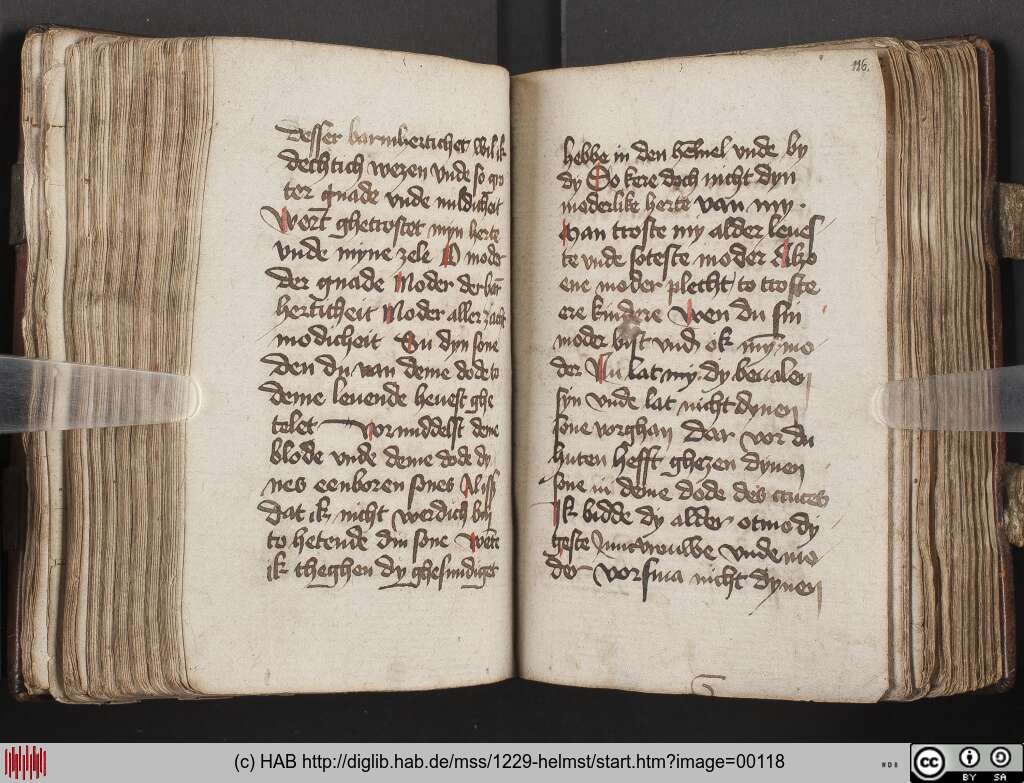 desser barmherticheit wil ik
dechtich wezen vnde so gro
ter gnade vnde mildicheit
Wort ghetrostet myn herte
vnde myne zele O moder
der gnade Moder der bar
herticheit Moder aller zacht
modicheit Su dyn sone
den du van deme dode to
deme leuende heuest ghe
telet Vormiddelst deme
blode vnde deme dode dy
nes eenboren sones Al iss
dat ik nicht werdich bin
to hetende din sone Wete
ik theghen dy ghesundiget
116.
hebbe in den hemel vnde by
dy So kere doch nicht dyn
moderlike herte van my .
Man troste my alder leues
te vnde soteste moder Alzo
ene moder plecht to troste
ere kindere Wen du sin
moder bist vnd ok myn mo
der Nu lat my dy beualen
syn vnde lat nicht dynen
sone vorghan Dar vor du
huten hefft ghezen dynen
sone in deme dode des cruces
Ik bidde dy alder otmody
geste Juncvrouwe vnde mo
der vorsma nicht dynen
(c) HAB http://diglib.hab.de/mss/1229-helmst/start.htm?image=00118
WDB
cc BY SA